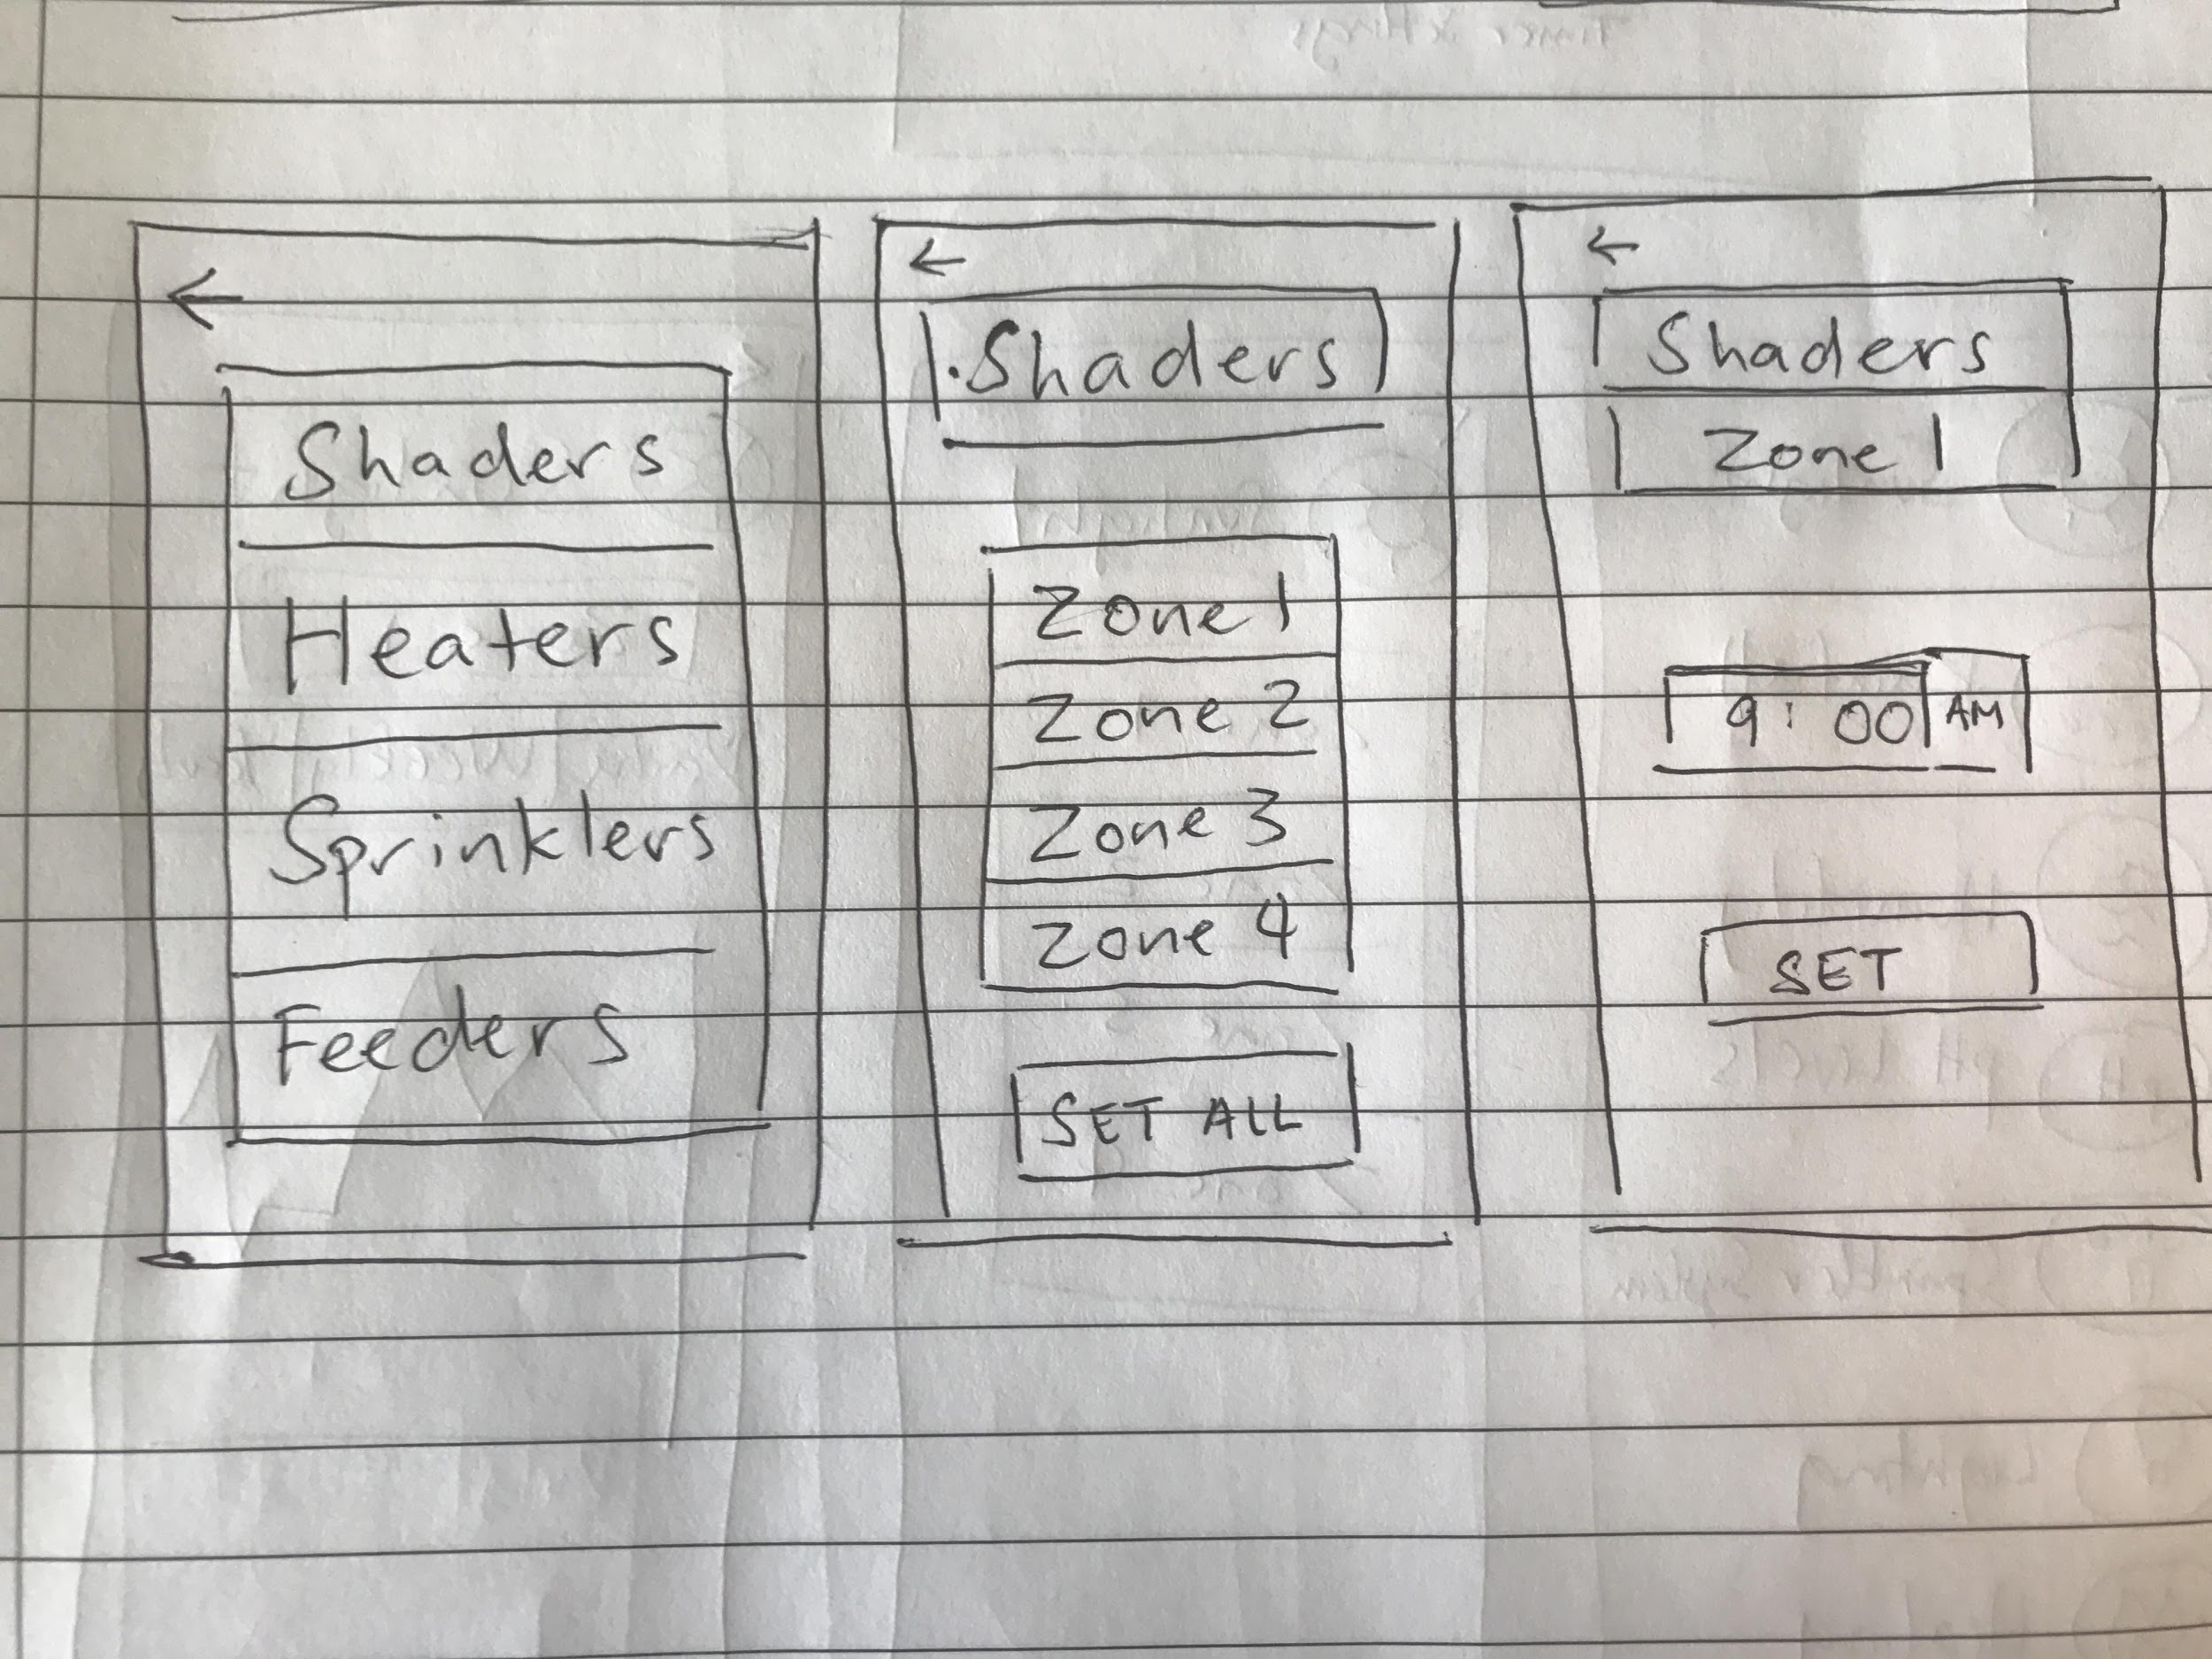 Shaders
Heaters
Sprinklers
Feeders
Shaders
Zone 1
Zone 2
Zone 3
Zone 4
SET ALL
Shaders
Zone 1
9:00 AM
SET